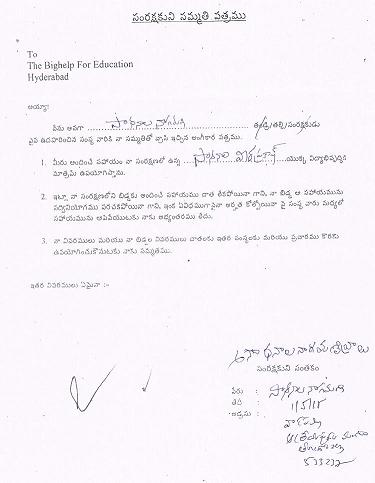 సంరక్షకుని సమ్మతి పత్రము
To
The Bighelp For Education
Hyderabad
అయ్యా!
నేను అనగా తండ్రి/తల్లి/సంరక్షకుడు
పైన ఉదహరించిన సంస్థ వారికి నా సమ్మతితో వ్రాసి ఇచ్చిన అంగీకార పత్రము.
1. మీరు అందించే సహాయం నా సంరక్షణలో ఉన్న యొక్క విద్యాభివృద్ధికి
మాత్రమే ఉపయోగిస్తాను.
2. ఇట్లా నా సంరక్షణలోని బిడ్డకు అందించే సహాయము దాత లేకపోయినా గాని, నా బిడ్డ ఆ సహాయమును
సద్వినియోగము పరచకపోయినా గాని, ఇంక ఏవిధముగానైనా అర్హత కోల్పోయినా పై సంస్థ వారు మధ్యలో
సహాయమును ఆపివేయుటకు నాకు అభ్యంతరము లేదు.
3. నా వివరములు మరియు నా బిడ్డల వివరములు దాతలకు ఇతర సంస్థలకు మరియు ప్రచారము కొరకు
ఉపయోగించుకొనుటకు నాకు సమ్మతము.
ఇతర వివరములు ఏమైనా :-
సంరక్షకుని సంతకం
పేరు :
తేది : 1/5/15
అడ్రసు :
533232